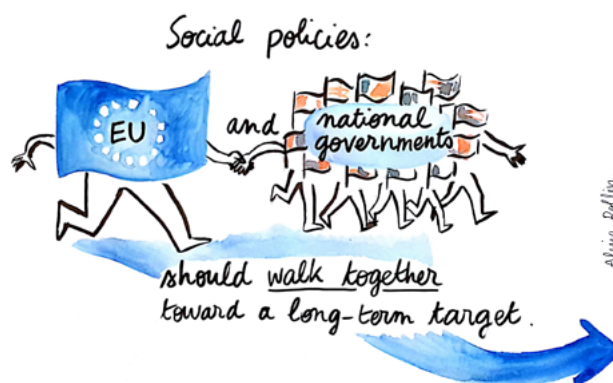 Social policies:
EU
and
national
governments
should walk together
toward a long-term target.